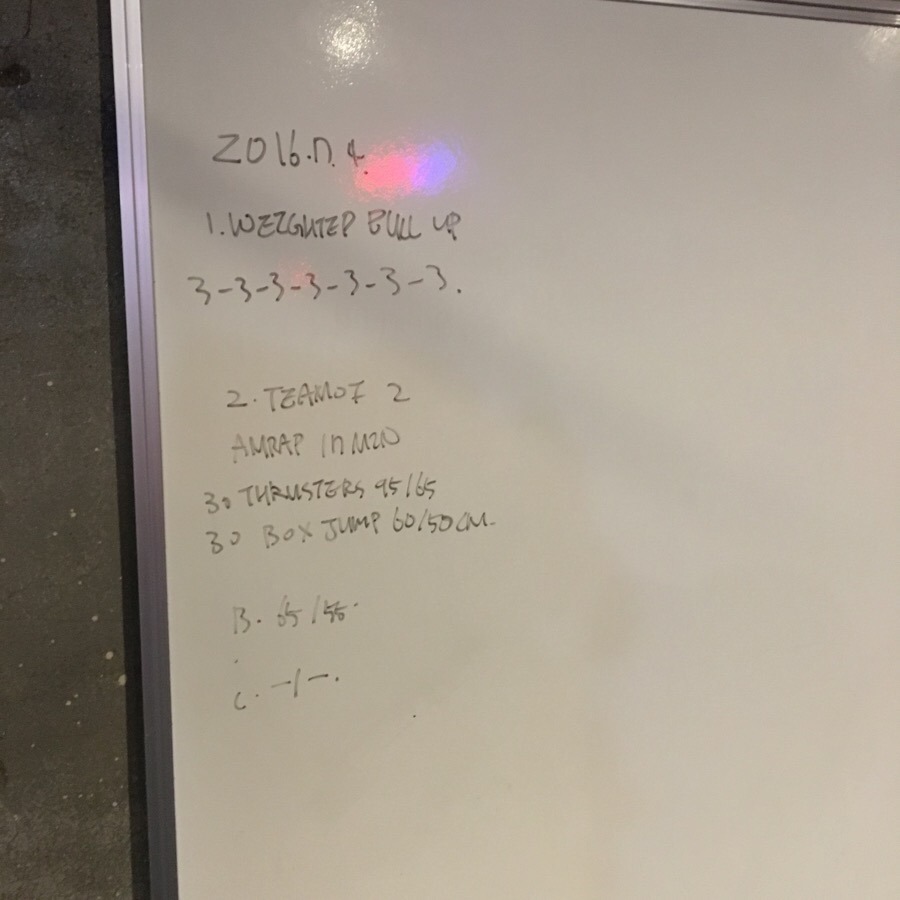 2016.12.4.
1. WEIGHTED PULL UP
3-3-3-3-3-3-3.
2. TEAM OF 2
AMRAP 12 MIN
30 THRUSTERS 95/65
30 BOX JUMP 60/50CM
B. 65/55.
C. -/-.